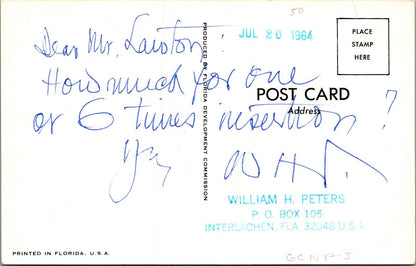 50
JUL 20 1964
PLACE
STAMP
HERE
Dear Mr. Lawton:
How much for one
or 6 times insertion?
W H P.
POST CARD
Address
PRODUCED BY FLORIDA DEVELOPMENT COMMISSION
WILLIAM H. PETERS
P. O. BOX 105
INTERLACHEN, FLA. 32048 U.S.A.
PRINTED IN FLORIDA, U.S.A.